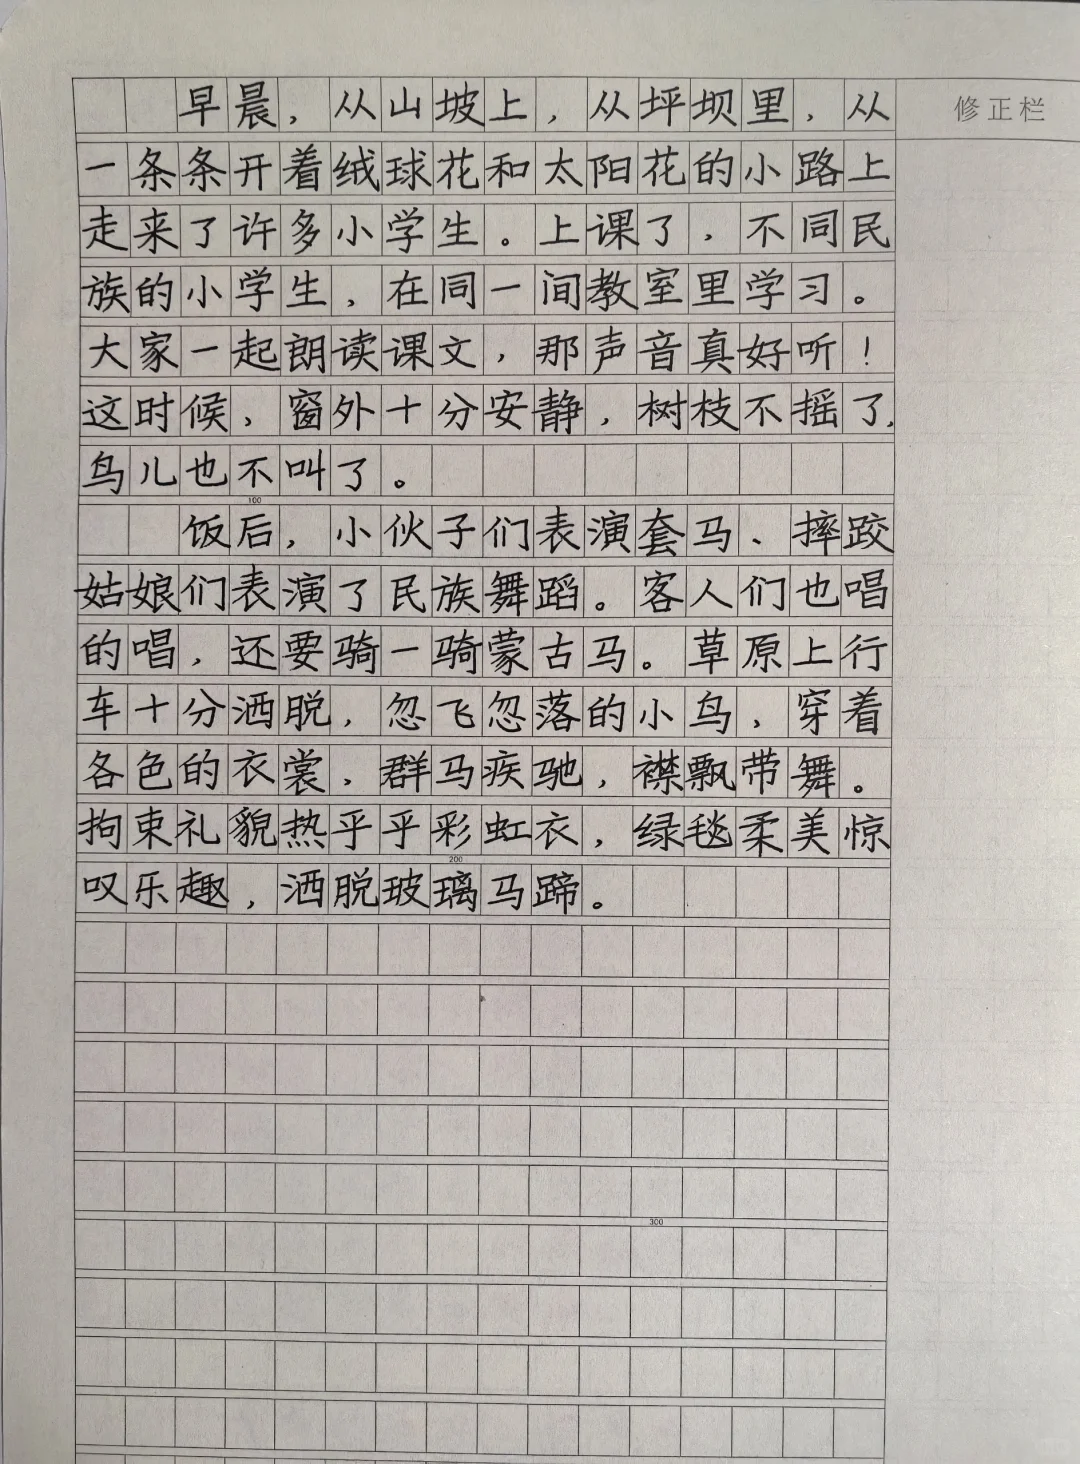 早晨，从山坡上，从坪坝里，从
修正栏
一条条开着绒球花和太阳花的小路上
走来了许多小学生。上课了，不同民
族的小学生，在同一间教室里学习。
大家一起朗读课文，那声音真好听！
这时候，窗外十分安静，树枝不摇了，
鸟儿也不叫了。
100
饭后，小伙子们表演套马、摔跤
姑娘们表演了民族舞蹈。客人们也唱
的唱，还要骑一骑蒙古马。草原上行
车十分洒脱，忽飞忽落的小鸟，穿着
各色的衣裳，群马疾驰，襟飘带舞。
拘束礼貌热乎乎彩虹衣，绿毯柔美惊
200
叹乐趣，洒脱玻璃马蹄。
300